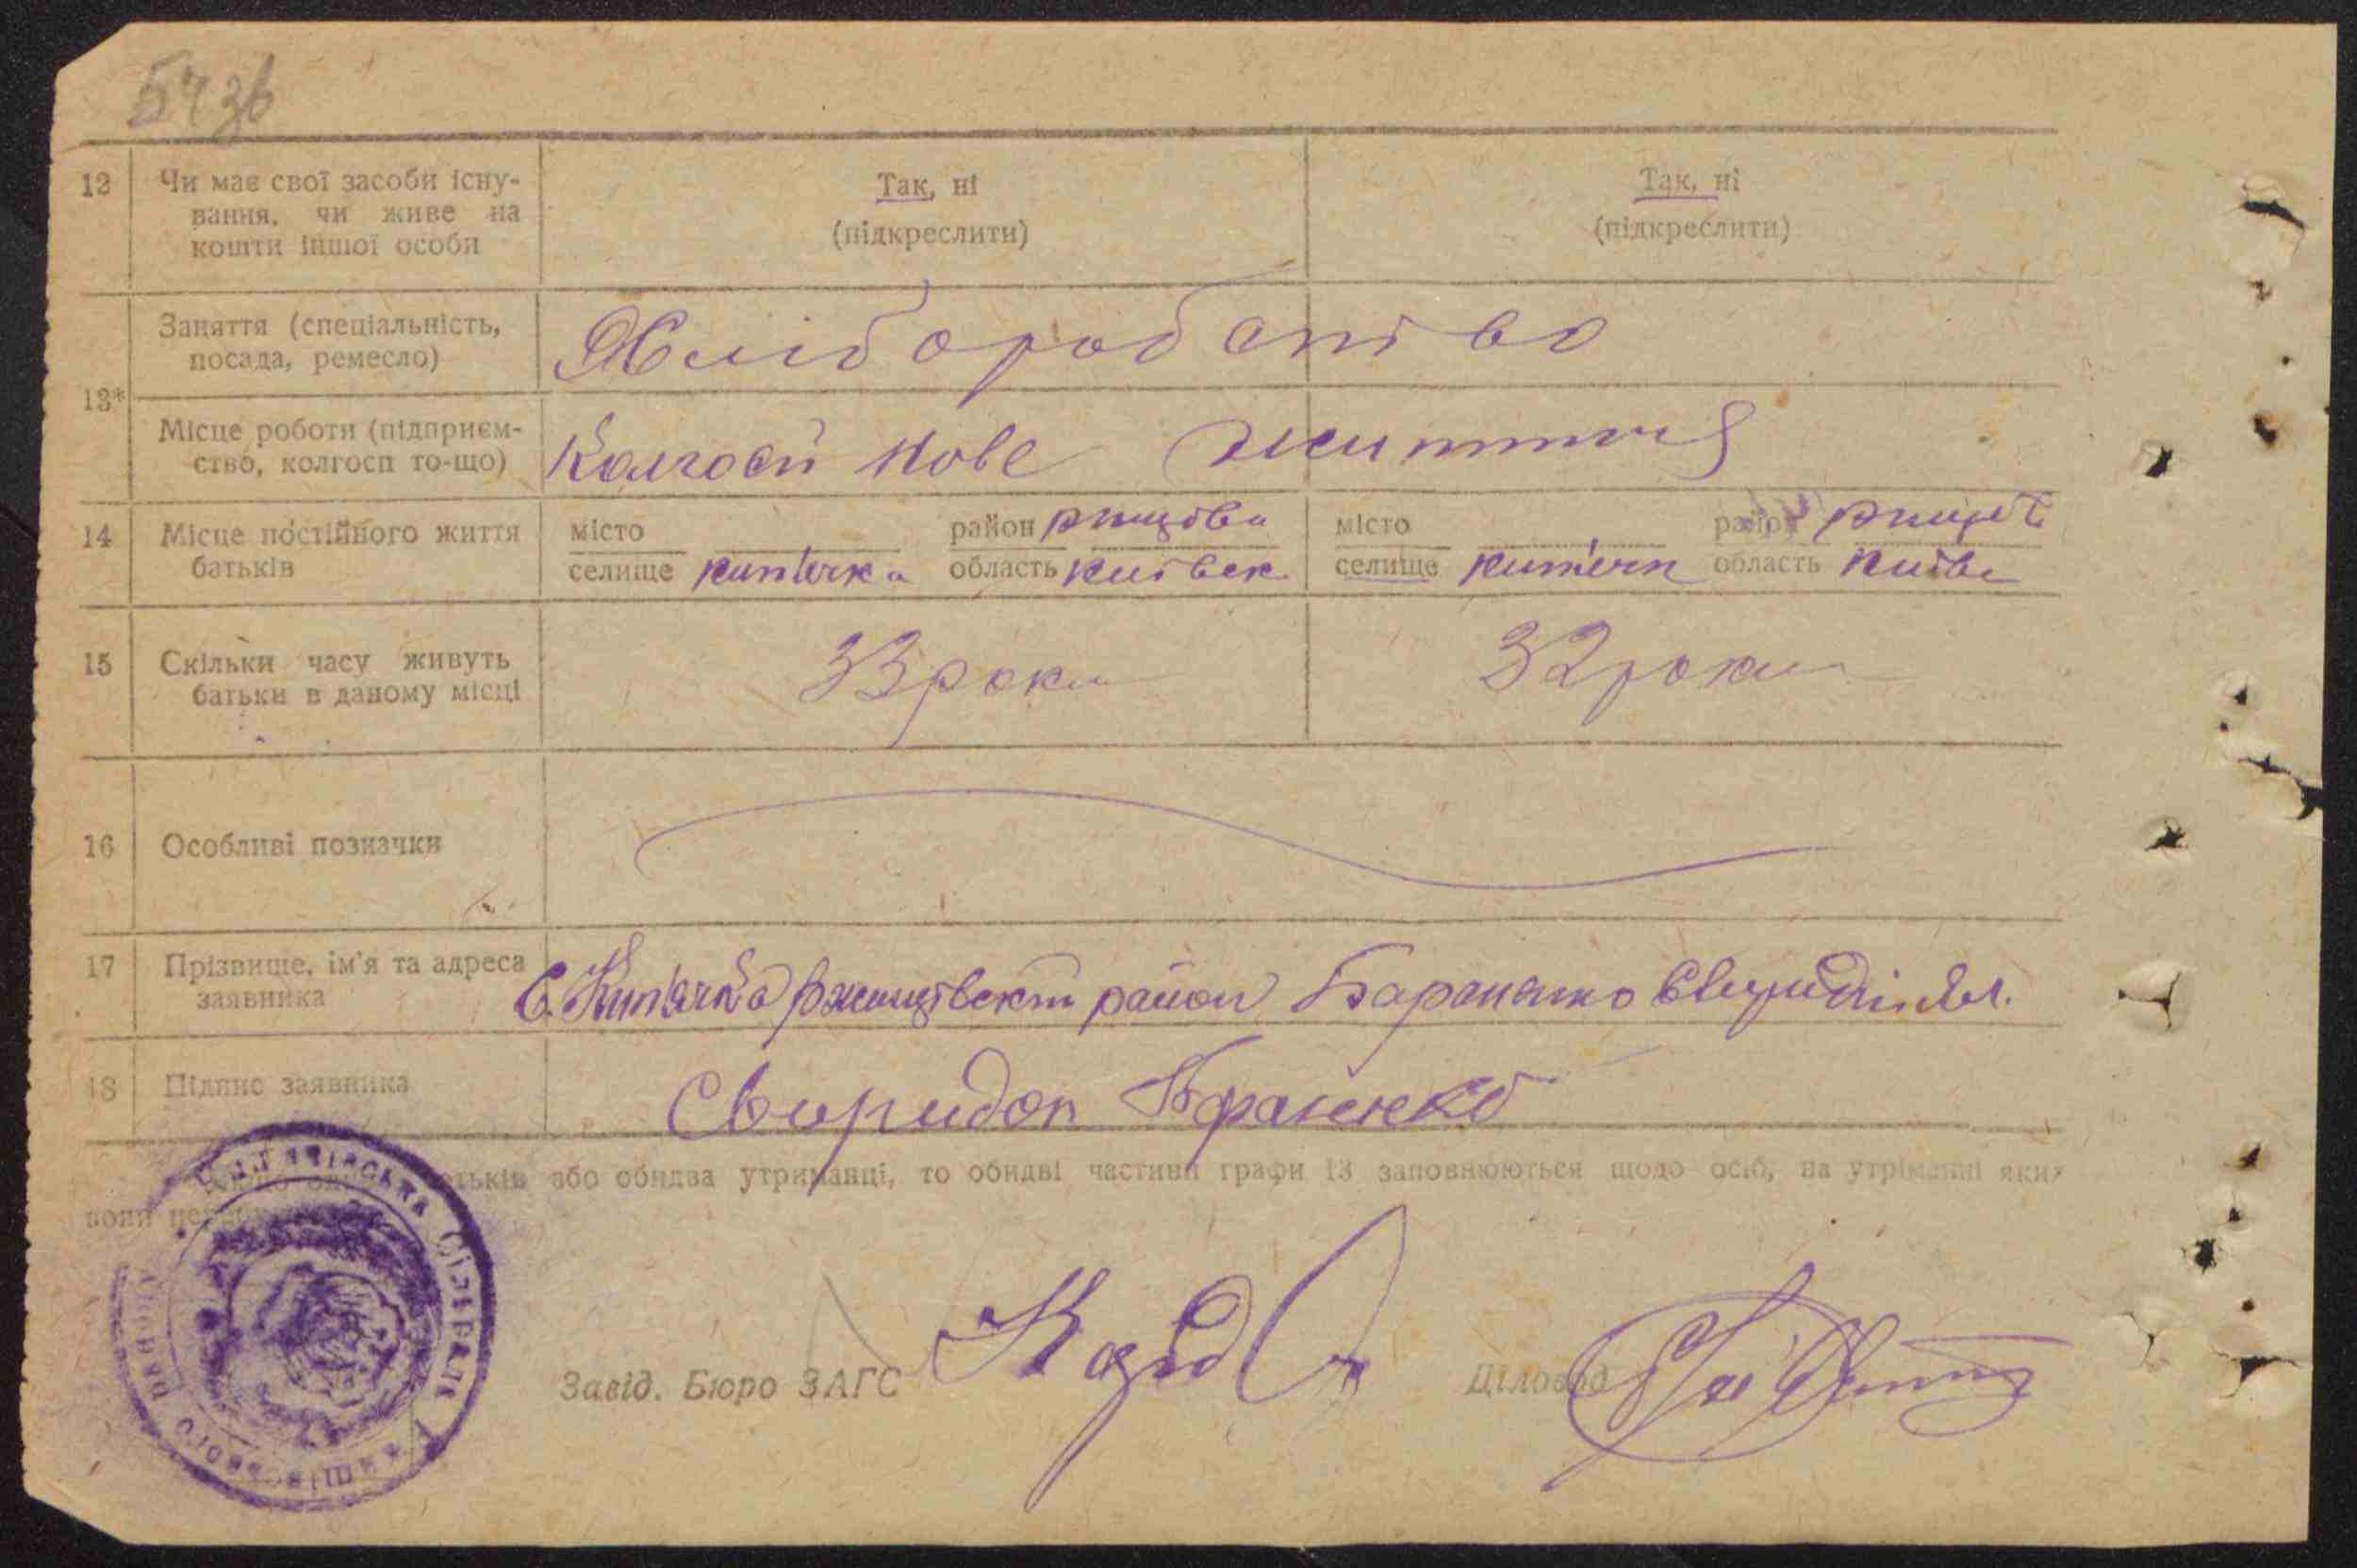 54зв
12 Чи має свої засоби існу-
вання, чи живе на
кошти іншої особи
Так, ні
(підкреслити)
Так, ні
(підкреслити)
13*
Заняття (спеціальність,
посада, ремесло)
Хліборобство
Місце роботи (підприєм-
ство, колгосп то-що)
Колгосп Нове життя
14 Місце постійного життя
батьків
місто район
селище область Київськ
місто район
селище область Київс
15 Скільки часу живуть
батьки в даному місці
33 роки 32 роки
16 Особливі позначки
17 Прізвище, ім'я та адреса
заявника
район Бараненко
18 Підпис заявника
Свиридон Браненко
або обидва утриманці, то обидві частини графи 13 заповнюються щодо осіб, на утріманні яких
вони
Завід. Бюро ЗАГС
Діловод
СІЛЬРАДА
РАЙОНУ